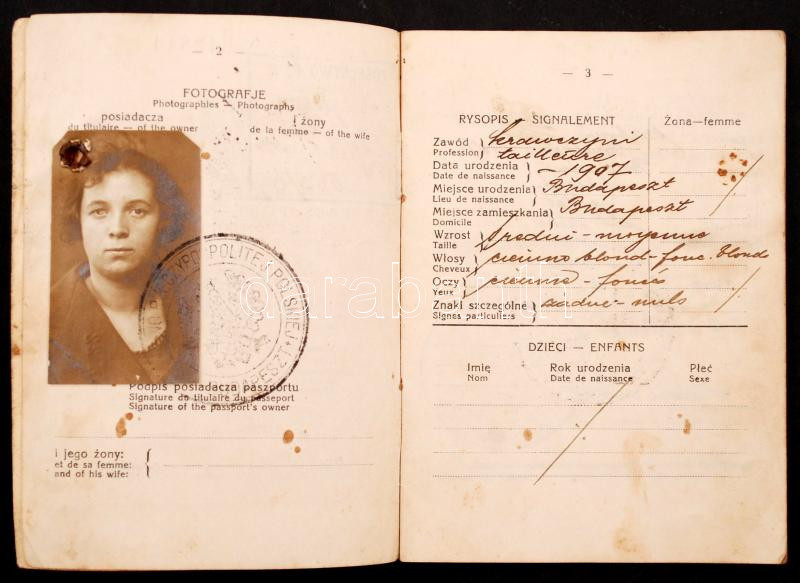 — 2 —
FOTOGRAFJE
Photographies — Photographs
posiadacza
du titulaire — of the owner
i żony
de la femme — of the wife
POLITEJ POLSKIEJ
Podpis posiadacza paszportu
Signature du titulaire du passeport
Signature of the passport's owner
i jego żony:
et de sa femme:
and of his wife:
— 3 —
RYSOPIS — SIGNALEMENT
Żona—femme
Zawód krawczyni
Profession tailleure
Data urodzenia
Date de naissance — 1907
Miejsce urodzenia Budapeszt
Lieu de naissance
Miejsce zamieszkania Budapeszt
Domicile
Wzrost średni - moyenne
Taille
Włosy ciemno blond - fonc. blond
Cheveux
Oczy ciemno - foncés
Yeux
Znaki szczególne żadne - nuls
Signes particuliers
DZIECI — ENFANTS
Imię Rok urodzenia Płeć
Nom Date de naissance Sexe
darabanth